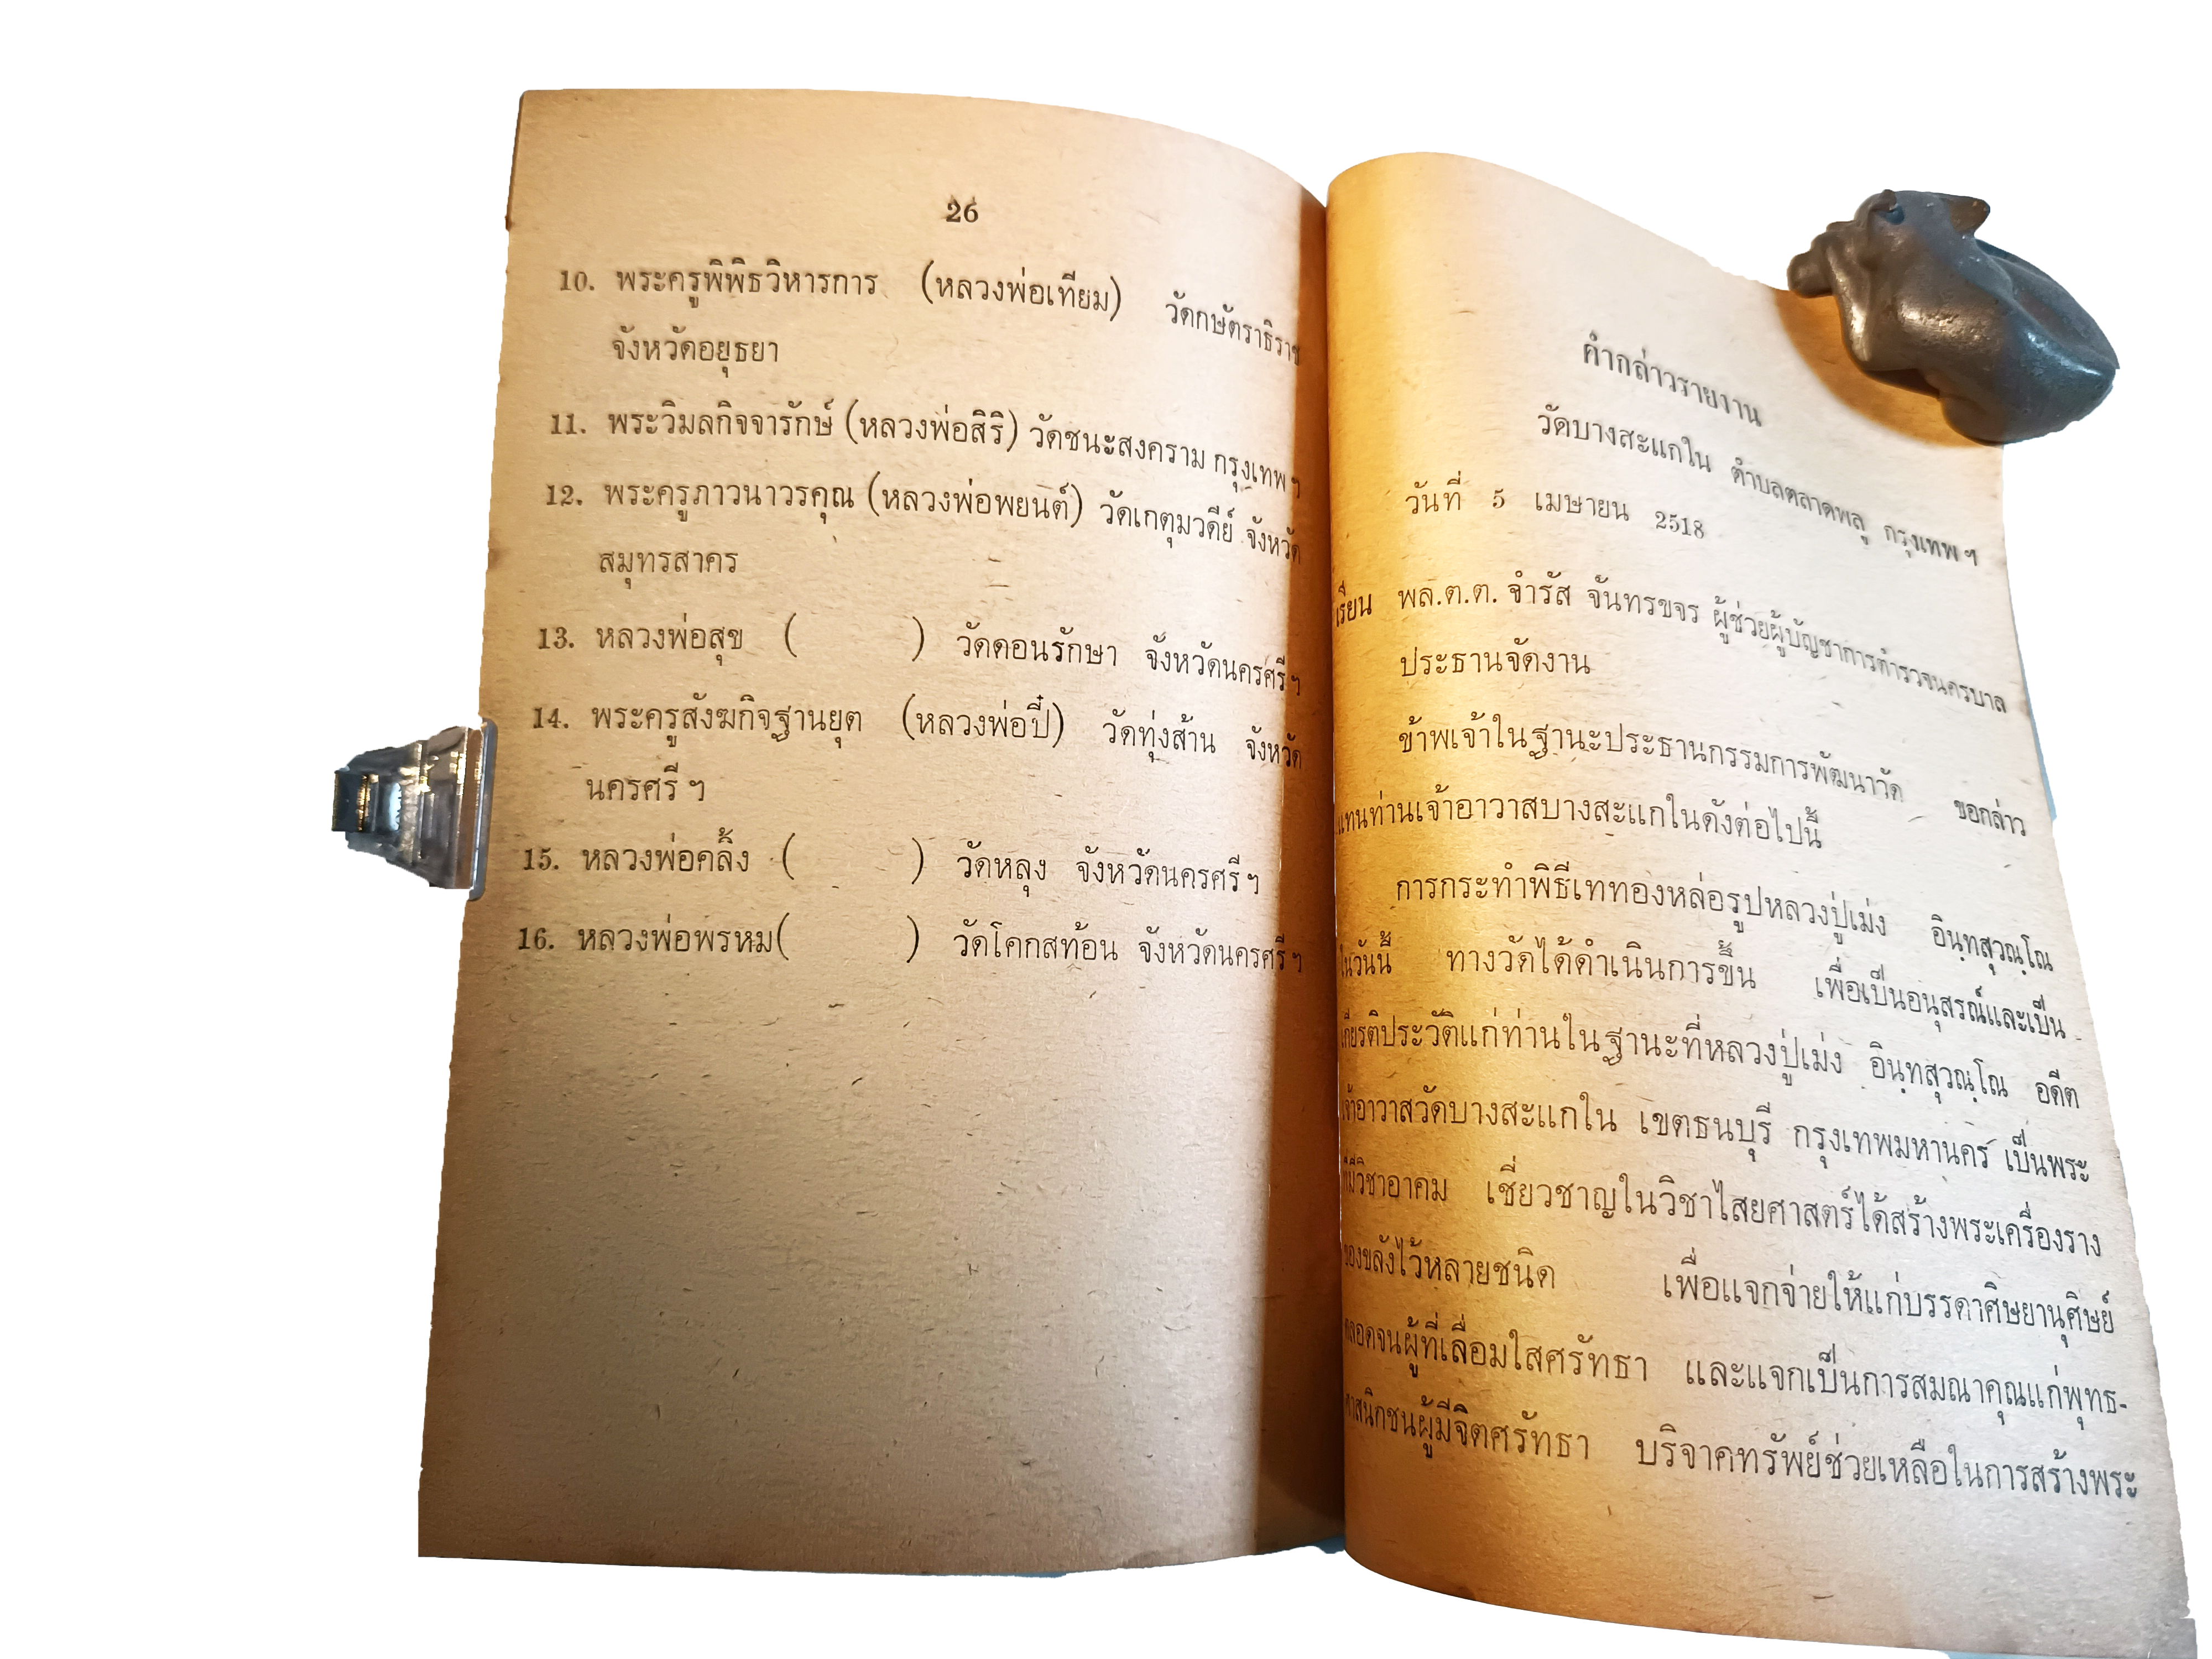 26
10. พระครูพิพิธวิหารการ (หลวงพ่อเทียม) วัดกษัตราธิราช
จังหวัดอยุธยา
11. พระวิมลกิจจารักษ์ (หลวงพ่อสิริ) วัดชนะสงคราม กรุงเทพฯ
12. พระครูภาวนาวรคุณ (หลวงพ่อพยนต์) วัดเกตุมวดีย์ จังหวัด
สมุทรสาคร
13. หลวงพ่อสุข ( ) วัดดอนรักษา จังหวัดนครศรีฯ
14. พระครูสังฆกิจฐานยุต (หลวงพ่อปี้) วัดทุ่งส้าน จังหวัด
นครศรีฯ
15. หลวงพ่อคลิ้ง ( ) วัดหลุง จังหวัดนครศรีฯ
16. หลวงพ่อพรหม( ) วัดโคกสท้อน จังหวัดนครศรีฯ
คำกล่าวรายงาน
วัดบางสะแกใน ตำบลตลาดพลู กรุงเทพฯ
วันที่ 5 เมษายน 2518
เรียน พล.ต.ต. จำรัส จันทรขจร ผู้ช่วยผู้บัญชาการตำรวจนครบาล
ประธานจัดงาน
ข้าพเจ้าในฐานะประธานกรรมการพัฒนาวัด ขอกล่าว
แทนท่านเจ้าอาวาสบางสะแกในดังต่อไปนี้
การกระทำพิธีเททองหล่อรูปหลวงปู่เม่ง อินฺทสุวณฺโณ
ในวันนี้ ทางวัดได้ดำเนินการขึ้น เพื่อเป็นอนุสรณ์และเป็น
เกียรติประวัติแก่ท่านในฐานะที่หลวงปู่เม่ง อินฺทสุวณฺโณ อดีต
เจ้าอาวาสวัดบางสะแกใน เขตธนบุรี กรุงเทพมหานคร เป็นพระ
ที่มีวิชาอาคม เชี่ยวชาญในวิชาไสยศาสตร์ได้สร้างพระเครื่องราง
ของขลังไว้หลายชนิด เพื่อแจกจ่ายให้แก่บรรดาศิษยานุศิษย์
ตลอดจนผู้ที่เลื่อมใสศรัทธา และแจกเป็นการสมณาคุณแก่พุทธ-
ศาสนิกชนผู้มีจิตศรัทธา บริจาคทรัพย์ช่วยเหลือในการสร้างพระ